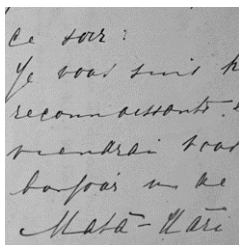 ce soir:
Je vous suis
reconnaissante.
viendrai vous
Mata-Hari